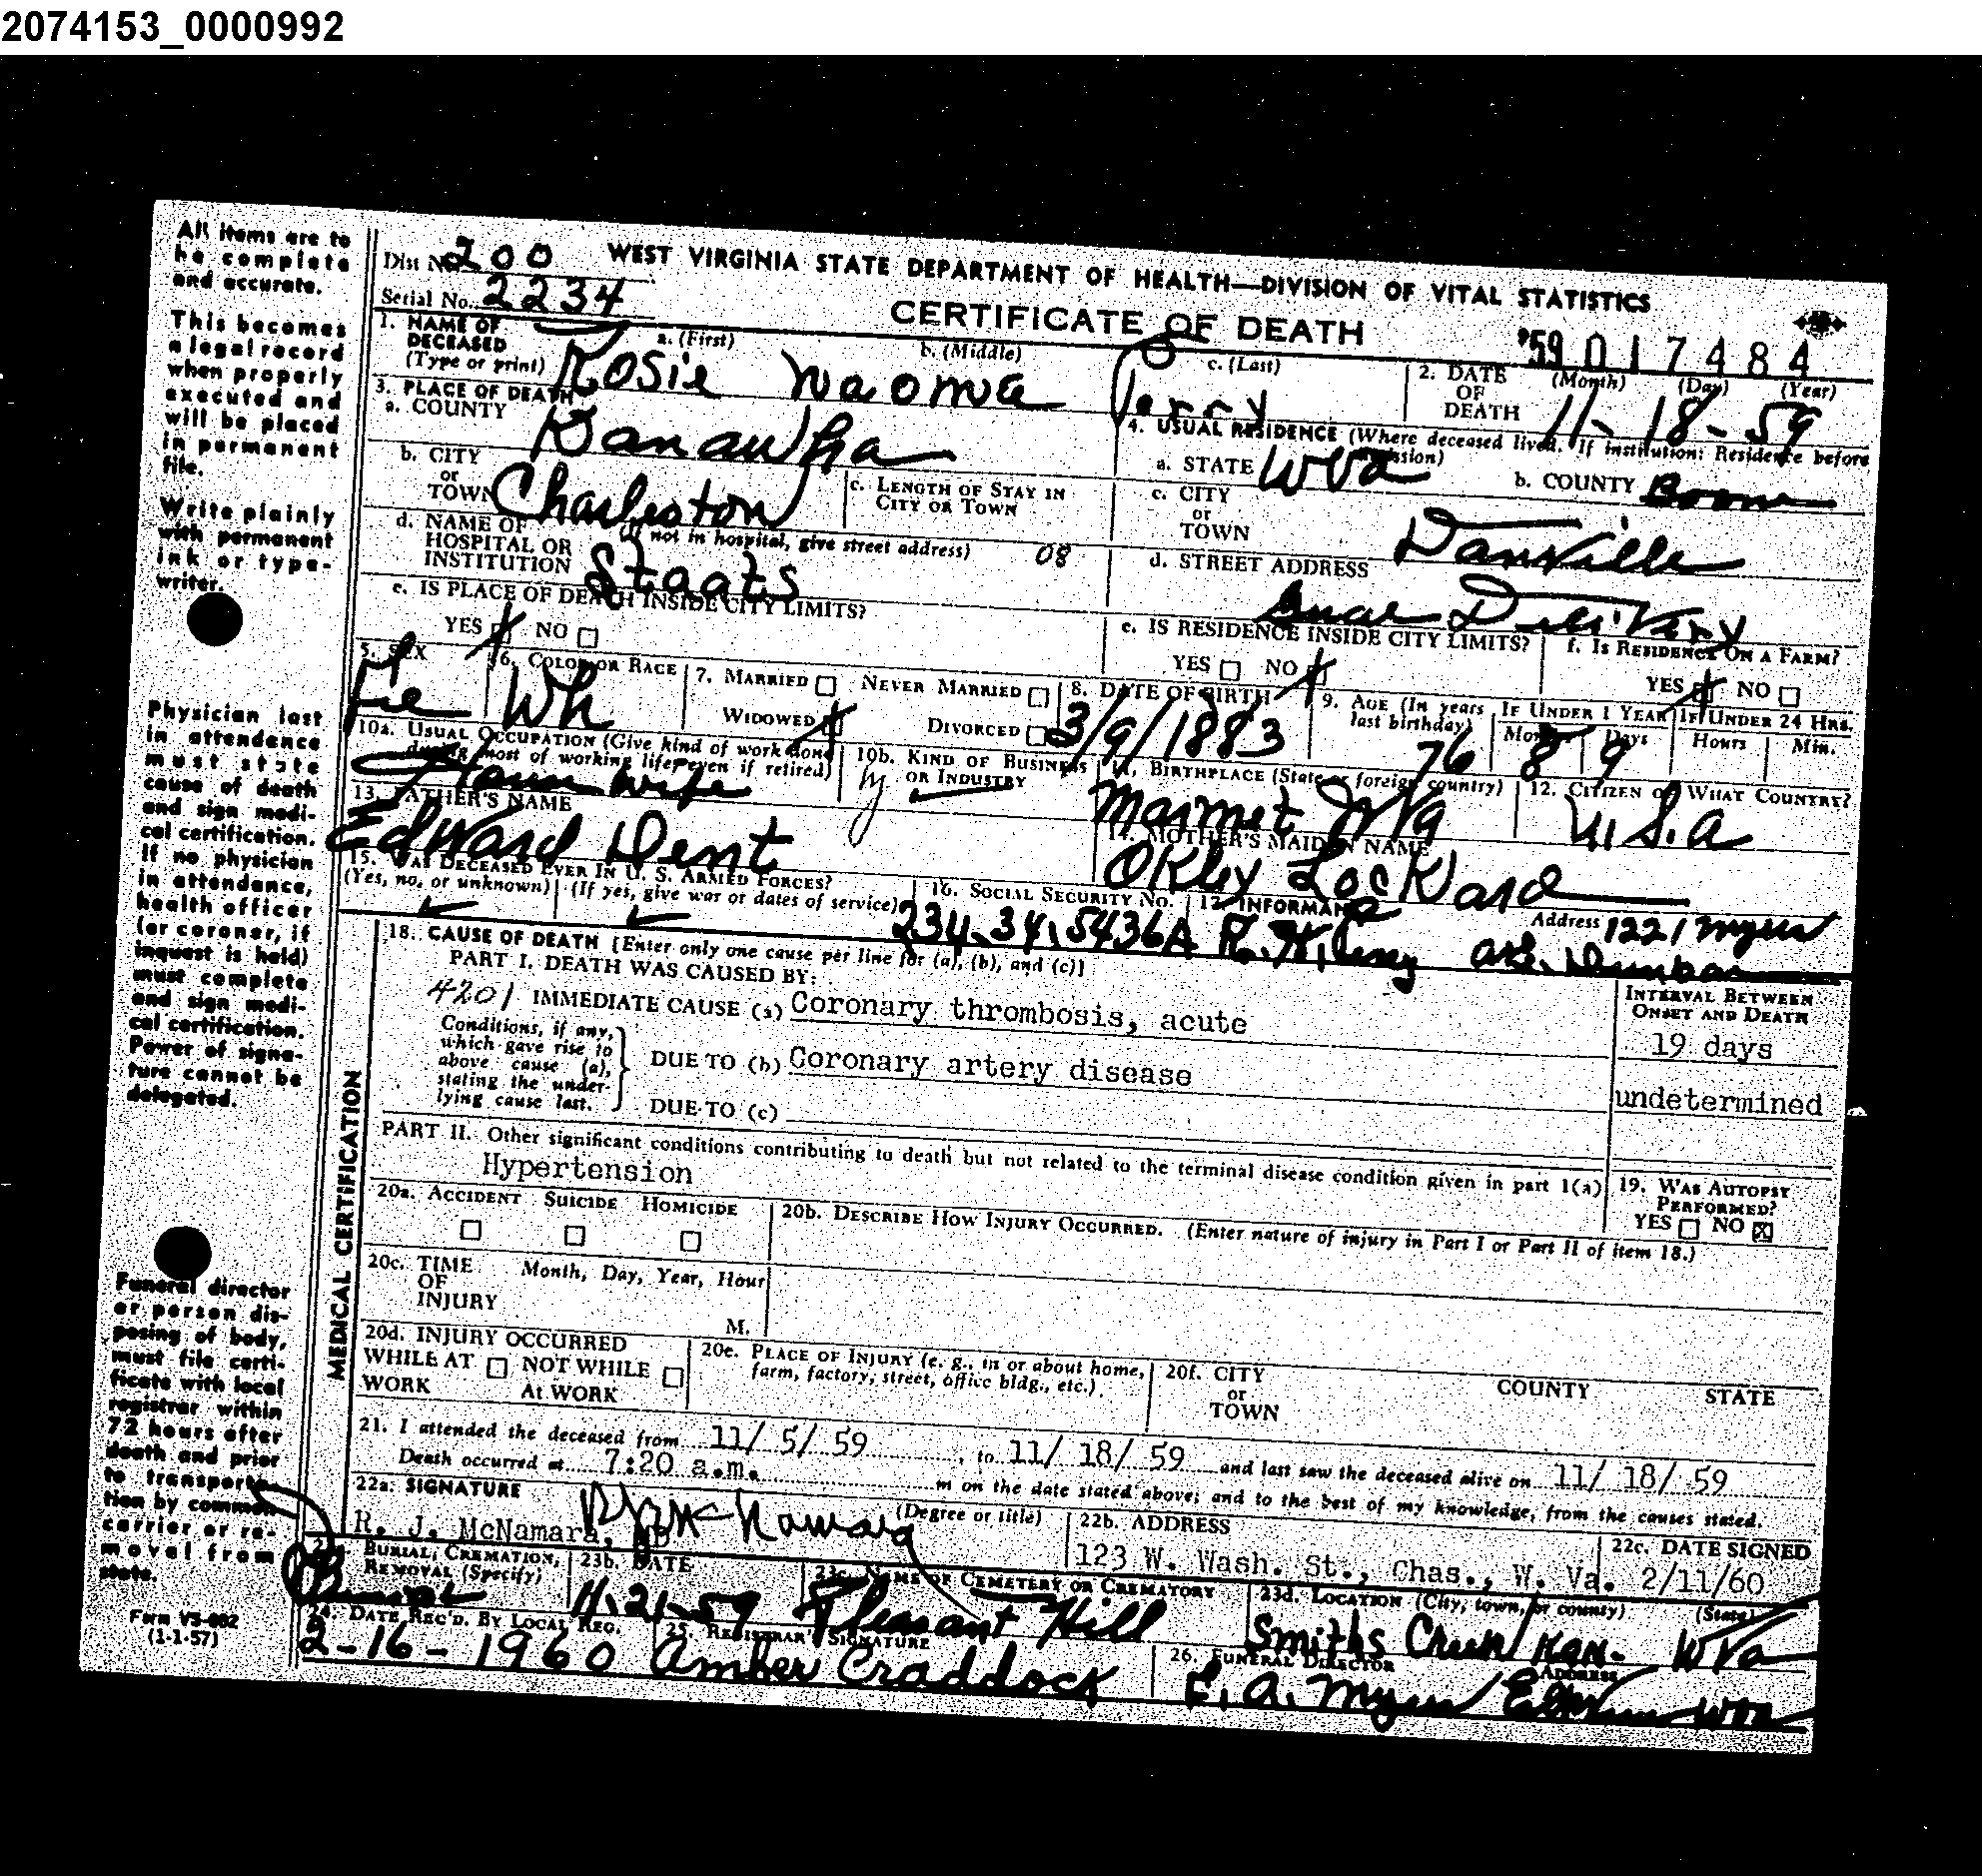 2074153_0000992
All items are to be complete and accurate.
This becomes a legal record when properly executed and will be placed in permanent file.
Write plainly with permanent ink or typewriter.
Physician last in attendence must state cause of death and sign medical certification. If no physician in attendance, health officer (or coroner, if inquest is held) must complete and sign medical certification. Power of signature cannot be delegated.
Funeral director or person disposing of body, must file certificate with local registrar within 72 hours after death and prior to transportation by common carrier or removal from state.
Form VS-002
(1-1-57)
Dist No. 200
WEST VIRGINIA STATE DEPARTMENT OF HEALTH—DIVISION OF VITAL STATISTICS
Serial No. 2234
CERTIFICATE OF DEATH
'59 017484
1. NAME OF DECEASED (Type or print) a. (First) b. (Middle) c. (Last)
Rosie Naoma Perry
2. DATE OF DEATH (Month) (Day) (Year)
11-18-59
3. PLACE OF DEATH
a. COUNTY Kanawha
4. USUAL RESIDENCE (Where deceased lived. If institution: Residence before admission)
a. STATE WVa b. COUNTY Boone
b. CITY or TOWN Charleston
c. LENGTH OF STAY IN CITY OR TOWN
c. CITY or TOWN Danville
d. NAME OF HOSPITAL OR INSTITUTION (If not in hospital, give street address) 08
Staats
d. STREET ADDRESS
Delivery
e. IS PLACE OF DEATH INSIDE CITY LIMITS?
YES NO
e. IS RESIDENCE INSIDE CITY LIMITS?
YES NO
f. IS RESIDENCE ON A FARM?
YES NO
5. SEX
Fe
6. COLOR OR RACE
Wh
7. MARRIED NEVER MARRIED
WIDOWED DIVORCED
8. DATE OF BIRTH
3/9/1883
9. AGE (In years last birthday) 76
IF UNDER 1 YEAR Months 8 Days 9
IF UNDER 24 HRS. Hours Min.
10a. USUAL OCCUPATION (Give kind of work done during most of working life, even if retired)
House wife
10b. KIND OF BUSINESS OR INDUSTRY
11. BIRTHPLACE (State or foreign country)
Marmet WVa
12. CITIZEN OF WHAT COUNTRY?
U.S.a
13. FATHER'S NAME
Edward Dent
14. MOTHER'S MAIDEN NAME
Okley Lockard
15. WAS DECEASED EVER IN U. S. ARMED FORCES?
(Yes, no, or unknown) (If yes, give war or dates of service)
16. SOCIAL SECURITY No.
234-34-5436A
17. INFORMANT Address 1221 Myers
ave. Dunbar
18. CAUSE OF DEATH [Enter only one cause per line for (a), (b), and (c)]
PART I. DEATH WAS CAUSED BY:
INTERVAL BETWEEN ONSET AND DEATH
4201 IMMEDIATE CAUSE (a) Coronary thrombosis, acute 19 days
Conditions, if any, which gave rise to above cause (a), stating the underlying cause last.
DUE TO (b) Coronary artery disease undetermined
DUE TO (c)
PART II. Other significant conditions contributing to death but not related to the terminal disease condition given in part 1(a)
Hypertension
19. WAS AUTOPSY PERFORMED?
YES NO X
20a. ACCIDENT SUICIDE HOMICIDE
20b. DESCRIBE HOW INJURY OCCURRED. (Enter nature of injury in Part I or Part II of item 18.)
20c. TIME OF INJURY Month, Day, Year, Hour
M.
20d. INJURY OCCURRED
WHILE AT WORK NOT WHILE AT WORK
20e. PLACE OF INJURY (e. g., in or about home, farm, factory, street, office bldg., etc.)
20f. CITY or TOWN COUNTY STATE
MEDICAL CERTIFICATION
21. I attended the deceased from 11/ 5/ 59, to 11/ 18/ 59 and last saw the deceased alive on 11/ 18/ 59
Death occurred at 7:20 a.m. m on the date stated above; and to the best of my knowledge, from the causes stated.
22a. SIGNATURE (Degree or title)
RJ McNamara
R. J. McNamara, MD
22b. ADDRESS
123 W. Wash. St., Chas., W. Va.
22c. DATE SIGNED
2/11/60
23a. BURIAL, CREMATION, REMOVAL (Specify)
Burial
23b. DATE
11-21-59
23c. NAME OF CEMETERY OR CREMATORY
Pleasant Hill
23d. LOCATION (City, town, or county) (State)
Smiths Creek Kan. WVa
24. DATE REC'D. BY LOCAL REG.
2-16-1960
25. REGISTRAR'S SIGNATURE
Amber Craddock
26. FUNERAL DIRECTOR ADDRESS